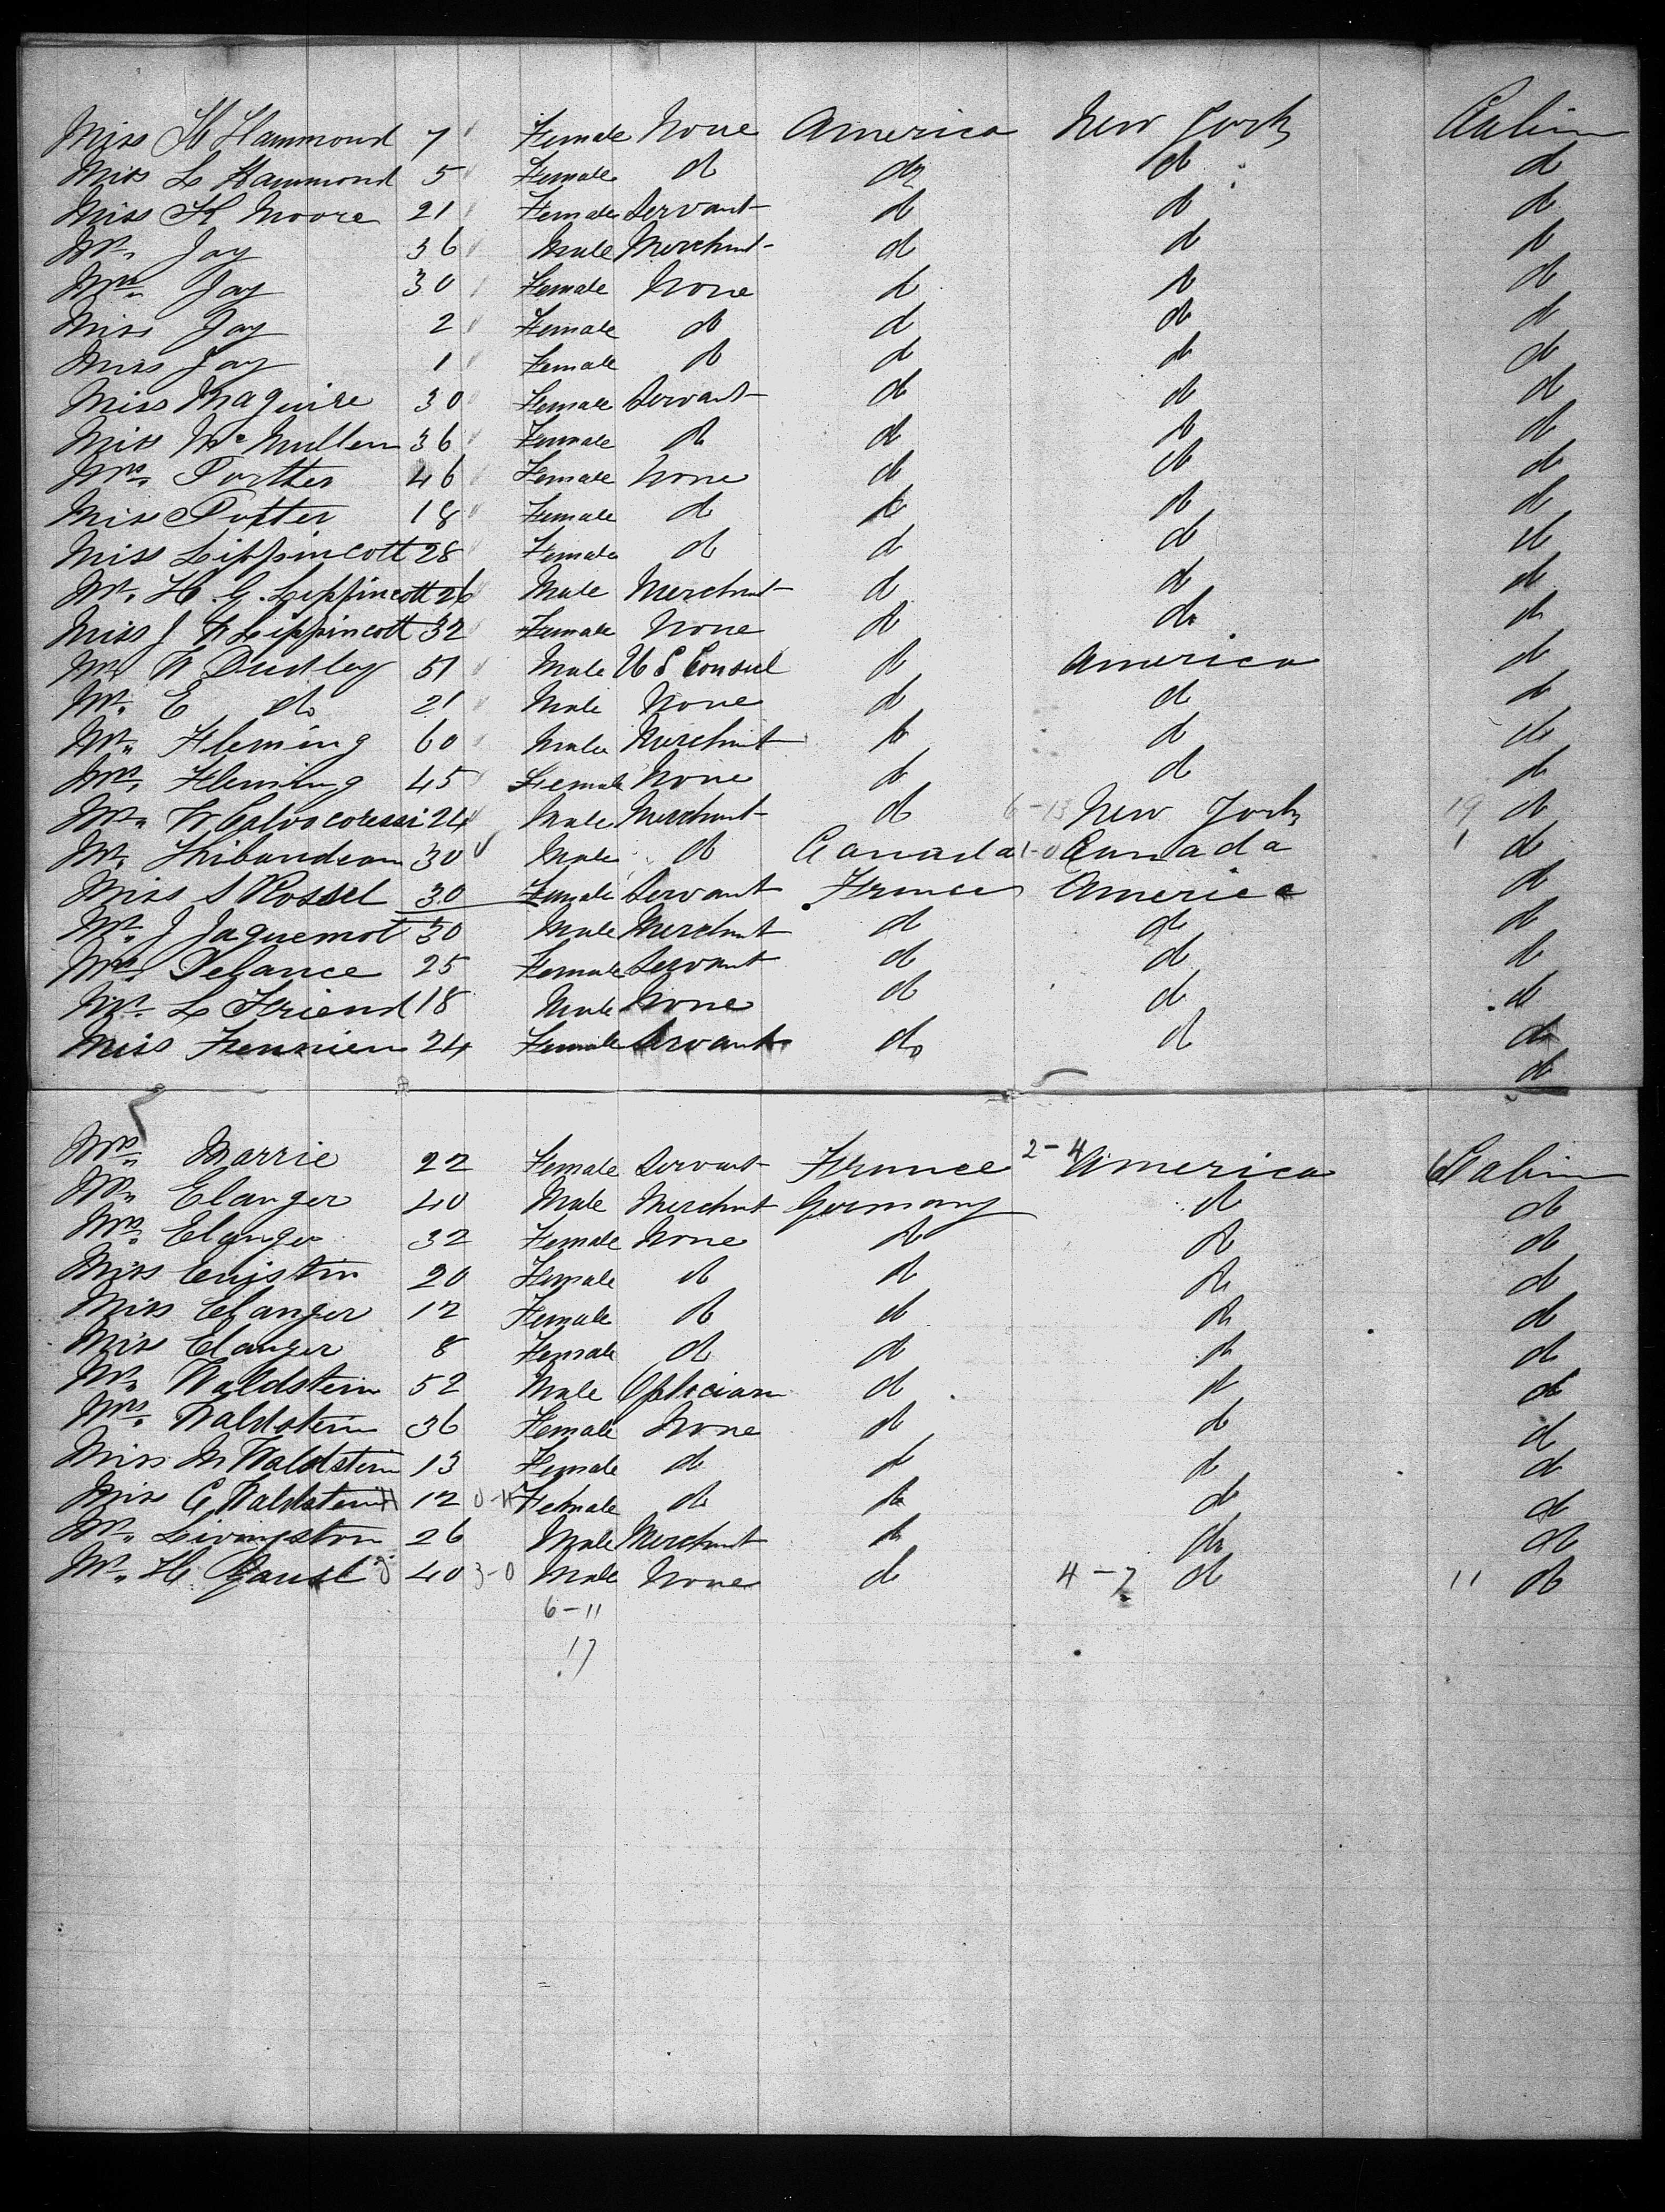 Miss H Hammond 7 Female None America New York Cabin
Miss L Hammond 5 Female do do do do
Miss K Moore 21 Female Servant do do do
Mr. Jay 36 Male Merchant do do do
Mrs. Jay 30 Female None do do do
Miss Jay 2 Female do do do do
Miss Jay 1 Female do do do do
Miss Maguire 30 Female Servant do do do
Miss McMullen 36 Female do do do do
Mrs. Potter 46 Female None do do do
Miss Potter 18 Female do do do do
Miss Lippincott 28 Female do do do do
Mr. H. G. Lippincott 26 Male Merchant do do do
Miss J W Lippincott 32 Female None do do do
Mr W Dudley 51 Male U S Consul do America do
Mr. E do 21 Male None do do do
Mr. Fleming 60 Male Merchant do do do
Mrs. Fleming 45 Female None do do do
Mr. 24 Male Merchant do 6-13 New York 19 do
Mr. Thibaudeau 30 Male do Canada 1-0 Canada 1 do
Miss S Rossel 30 Female Servant France America do
Mr. J Jaquemot 30 Male Merchant do do do
Mrs. Pelance 25 Female Servant do do do
Mr. L Friend 18 Male None do do do
Miss Fennien 24 Female Servant do do do
do
Mrs. Marrie 22 Female Servant France 2-4 America Cabin
Mr. Elanger 40 Male Merchant Germany do do
Mrs. Elanger 32 Female None do do do
Miss 20 Female do do do do
Miss Elanger 12 Female do do do do
Miss Elanger 8 Female do do do do
Mr. Waldstein 52 Male Optician do do do
Mrs. Waldstein 36 Female None do do do
Miss M Waldstein 13 Female do do do do
Miss G Waldstein 12 0-11 Female do do do do
Mr. Livingston 26 Male Merchant do do do
Mr. H 40 3-0 Male None do 4-7 do 11 do
6-11
17